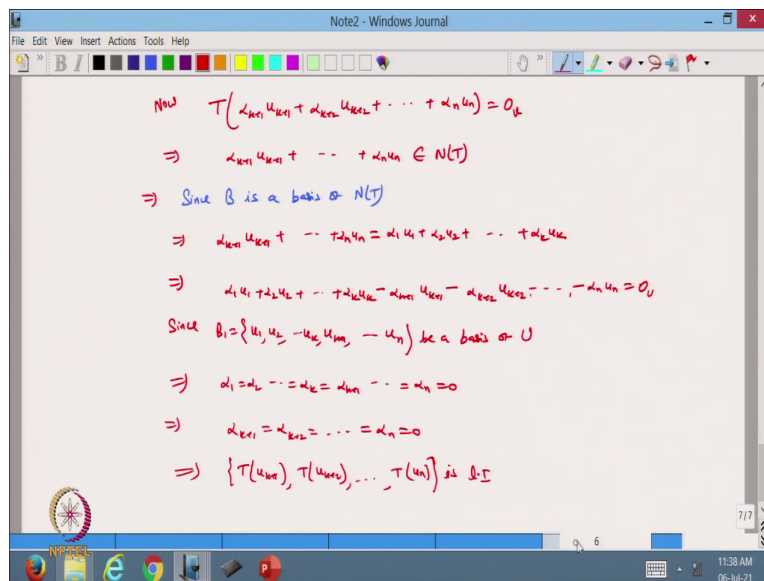 Note2 - Windows Journal
File Edit View Insert Actions Tools Help
Now T(α_{k+1} u_{k+1} + α_{k+2} u_{k+2} + ... + α_n u_n) = 0_V
⇒ α_{k+1} u_{k+1} + -- + α_n u_n ∈ N(T)
⇒ Since B is a basis of N(T)
⇒ α_{k+1} u_{k+1} + -- + α_n u_n = α_1 u_1 + α_2 u_2 + -- + α_k u_k
⇒ α_1 u_1 + α_2 u_2 + -- + α_k u_k - α_{k+1} u_{k+1} - α_{k+2} u_{k+2} - --- , - α_n u_n = 0_U
Since B_1 = {u_1, u_2, - u_k, u_{k+1}, -- u_n} be a basis of U
⇒ α_1 = α_2 -- = α_k = α_{k+1} -- = α_n = 0
⇒ α_{k+1} = α_{k+2} = ... = α_n = 0
⇒ {T(u_{k+1}), T(u_{k+2}), ..., T(u_n)} is l.I
7/7
6
NPTEL
11:38 AM
06-Jul-21